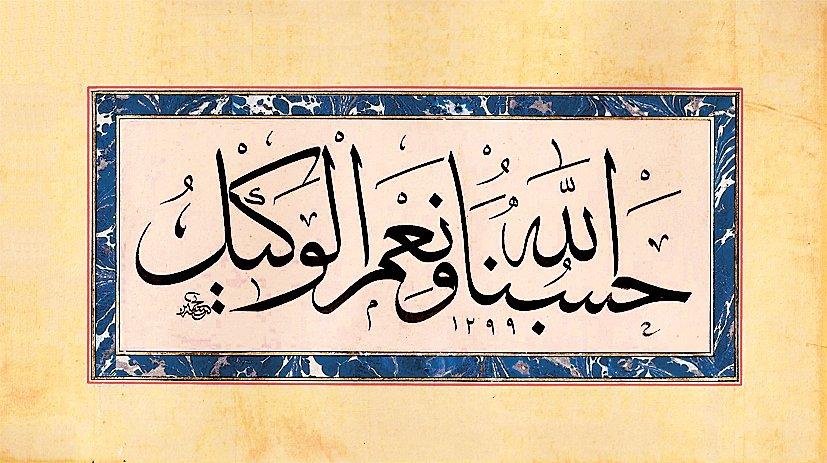 حَسْبُنَا اللّٰهُ وَنِعْمَ الْوَكِيلُ
١٢٩٩